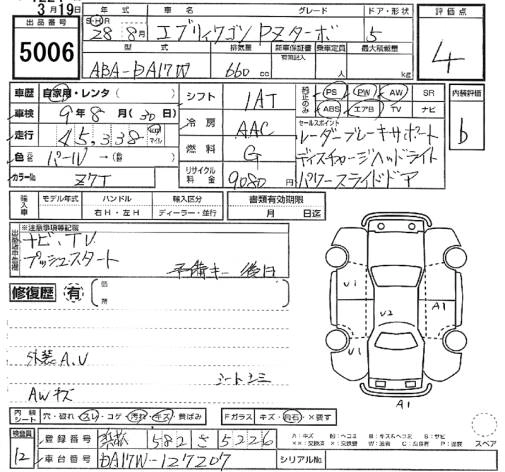 3月19日
出品番号
5006
年式 車名 グレード ドア・形状
S・H・R 28年8月 エブリィワゴン PZターボ 5
評価点
4
型式 排気量 新車保証書 乗車定員 最大積載量
ABA-DA17W 660cc 人 kg
車歴 自家用・レンタ
車検 9年8月(30日)
走行 45,338
色 パール → (色)
カラーNo. Z7T
シフト 1AT
冷房 AAC
燃料 G
リサイクル料金 9080円
純正のみ PS PW AW SR
ABS エアB TV ナビ
内装評価
b
セールスポイント
レーダーブレーキサポート
ディスチャージヘッドライト
パワースライドドア
輸入車 モデル年式 ハンドル 輸入区分
年 右H・左H ディーラー・並行
書類有効期限
月 日迄
※注意事項等記載
ナビ、TV
プッシュスタート
予備キー 後日
修復歴 有
箇所
外装A.U
シートシミ
AWキズ
U1 U2 A1 U1 A1
内装シート 穴・破れ・スレ・コゲ・汚れ・キズ・黄ばみ
Fガラス キズ・飛石・×要す
A:キズ U:ヘコミ B:キズ&ヘコミ S:サビ
スペア
検査員 12
登録番号 浜松 582 さ 5226
車台番号 DA17W-127207
シリアルNo.